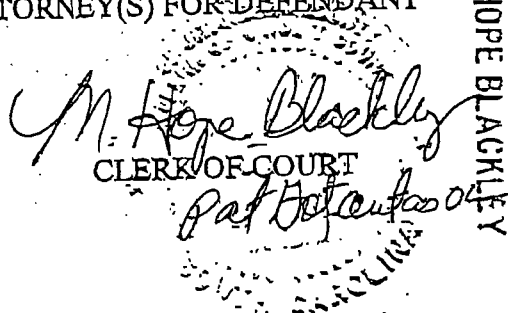 TORNEY(S) FOR DEFENDANT
M. Hope Blackley
CLERK OF COURT
Pat
HOPE BLACKLEY